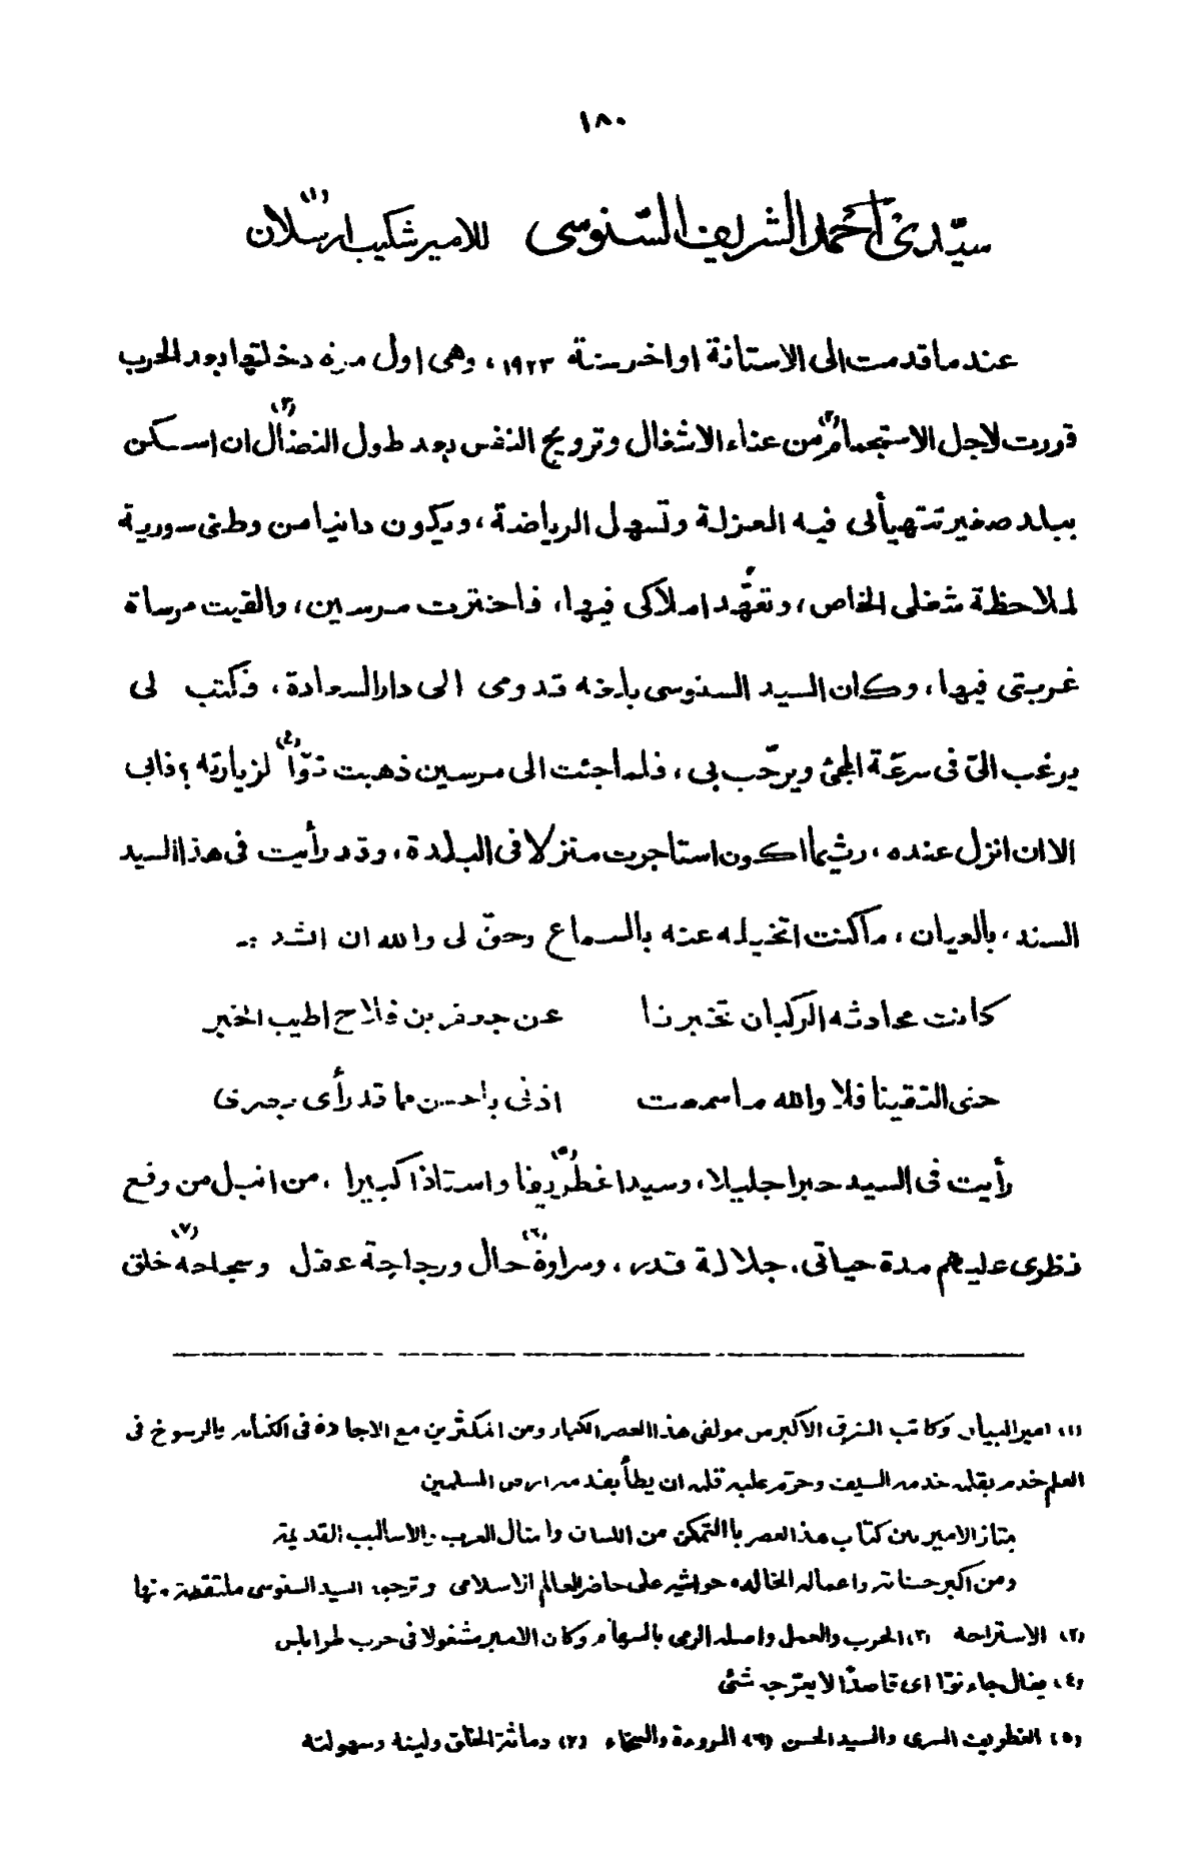 ١٨٠
سيّدى أحمد الشريف السّنوسى للامير شكيب ارسلان (١)
عندما قدمت الى الاستانة اواخر سنة ١٩٢٣، وهى اول مرة دخلتها بعد الحرب
قررت لاجل الاستجمام (٢) من عناء الاشغال وترويح النفس بعد طول النضال (٣) ان اسكن
ببلد صغير تتهيألى فيه العزلة وتسهل الرياضة، ويكون دانيا من وطنى سورية
لملاحظة شغلى الخاص، وتعهّد املاكى فيها، فاخترت مرسين، والقيت مرساة
غربتى فيها، وكان السيد السنوسى بلغه قدومى الى دار السعادة، فكتب لى
يرغب الىّ فى سرعة المجئ ويرحّب بى، فلما جئت الى مرسين ذهبت توّا (٤) لزيارته ؟ فابى
الا ان انزل عنده، ريثما اكون استاجرت منزلا فى البلدة، وقد رأيت فى هذا السيد
السند، بالعيان، ما كنت اتخيله عنه بالسماع وحقّ لى والله ان انشد :-
كانت محادثه الركبان تخبرنا عن جعفر بن فلاح اطيب الخبر
حتى التقينا فلا والله ما سمعت اذنى باحسن مما قد رأى بصرى
رأيت فى السيد حبرا جليلا، وسيدا غطريفا (٥) واستاذا كبيرا، من انبل من وقع
نظرى عليهم مدة حياتى، جلالة قدر، وسراوة (٦) حال ورجاحة عقل وسجاحة (٧) خلق
(١) امير البيان وكاتب الشرق الاكبر من مولفى هذا العصر الكبار ومن المكثرين مع الاجادة فى الكتابه والرسوخ فى
العلم خدم بقلمه خدمه السيف وحرّم عليه قلمه ان يطأ بقدمه ارض المسلمين
يمتاز الامير بين كتّاب هذا العصر باالتمكن من اللسان وامثال العرب والاساليب القديمة
ومن اكبر حسناته واعماله الخالده حواشيه على حاضر العالم الاسلامى وترجمة السيد السنوسى ملتقطة منها
(٢) الاستراحه (٣) الحرب والعمل واصله الرمى بالسهام وكان الامير مشغولا فى حرب طرابلس
(٤) يقال جاء توّا اى قاصدًا لا يعرّجه شئ
(٥) الغطريف السرى والسيد الحسن (٦) المروءة والسخاء (٧) دماثة الخلق ولينه وسهولته